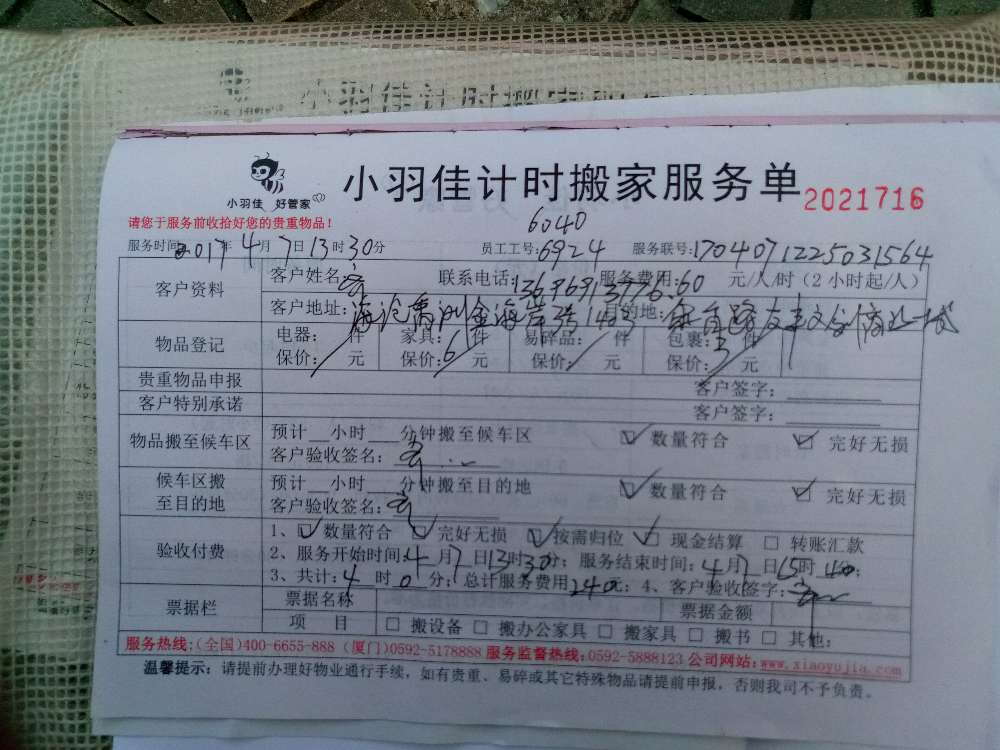 小羽佳计时搬家服务单 2021716
小羽佳 好管家
请您于服务前收拾好您的贵重物品！
6040
服务时间 2017年4月7日13时30分 员工工号:6924 服务联号:1704071225031564
客户资料 客户姓名: 联系电话: 服务费用:60 元/人/时（2小时起/人）
客户地址:海沧 目的地:
物品登记 电器: 件 家具: 件 易碎品: 件 包裹:3件
保价: 元 保价:6 元 保价: 元 保价: 元
贵重物品申报 客户签字:
客户特别承诺 客户签字:
物品搬至候车区 预计__小时__分钟搬至候车区 ☑数量符合 ☑完好无损
客户验收签名:
候车区搬至目的地 预计__小时__分钟搬至目的地 ☑数量符合 ☑完好无损
客户验收签名:
验收付费 1、☑数量符合 ☑完好无损 ☑按需归位 ☑现金结算 □转账汇款
2、服务开始时间:4月7日13时30分；服务结束时间:4月7日15时40；
3、共计:4时0分；总计服务费用240元；4、客户验收签字:
票据栏 票据名称 票据金额
项 目 □搬设备 □搬办公家具 □搬家具 □搬书 □其他:
服务热线:(全国)400-6655-888 (厦门)0592-5178888 服务监督热线:0592-5888123 公司网站:www.xiaoyujia.com
温馨提示：请提前办理好物业通行手续，如有贵重、易碎或其它特殊物品请提前申报，否则我司不予负责。